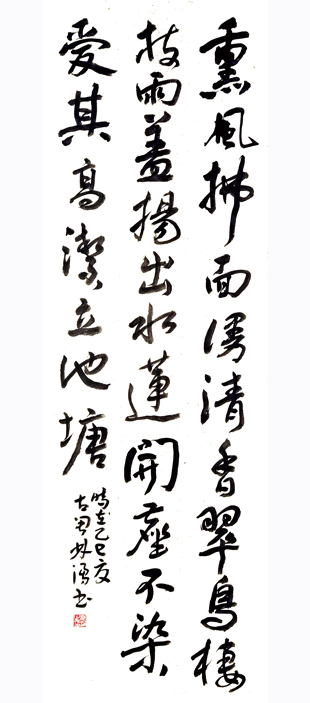 熏風拂面漫清香翠鳥棲
枝雨蓋揚出水蓮開塵不染
愛其高潔立池塘
時在乙巳夏
古林書